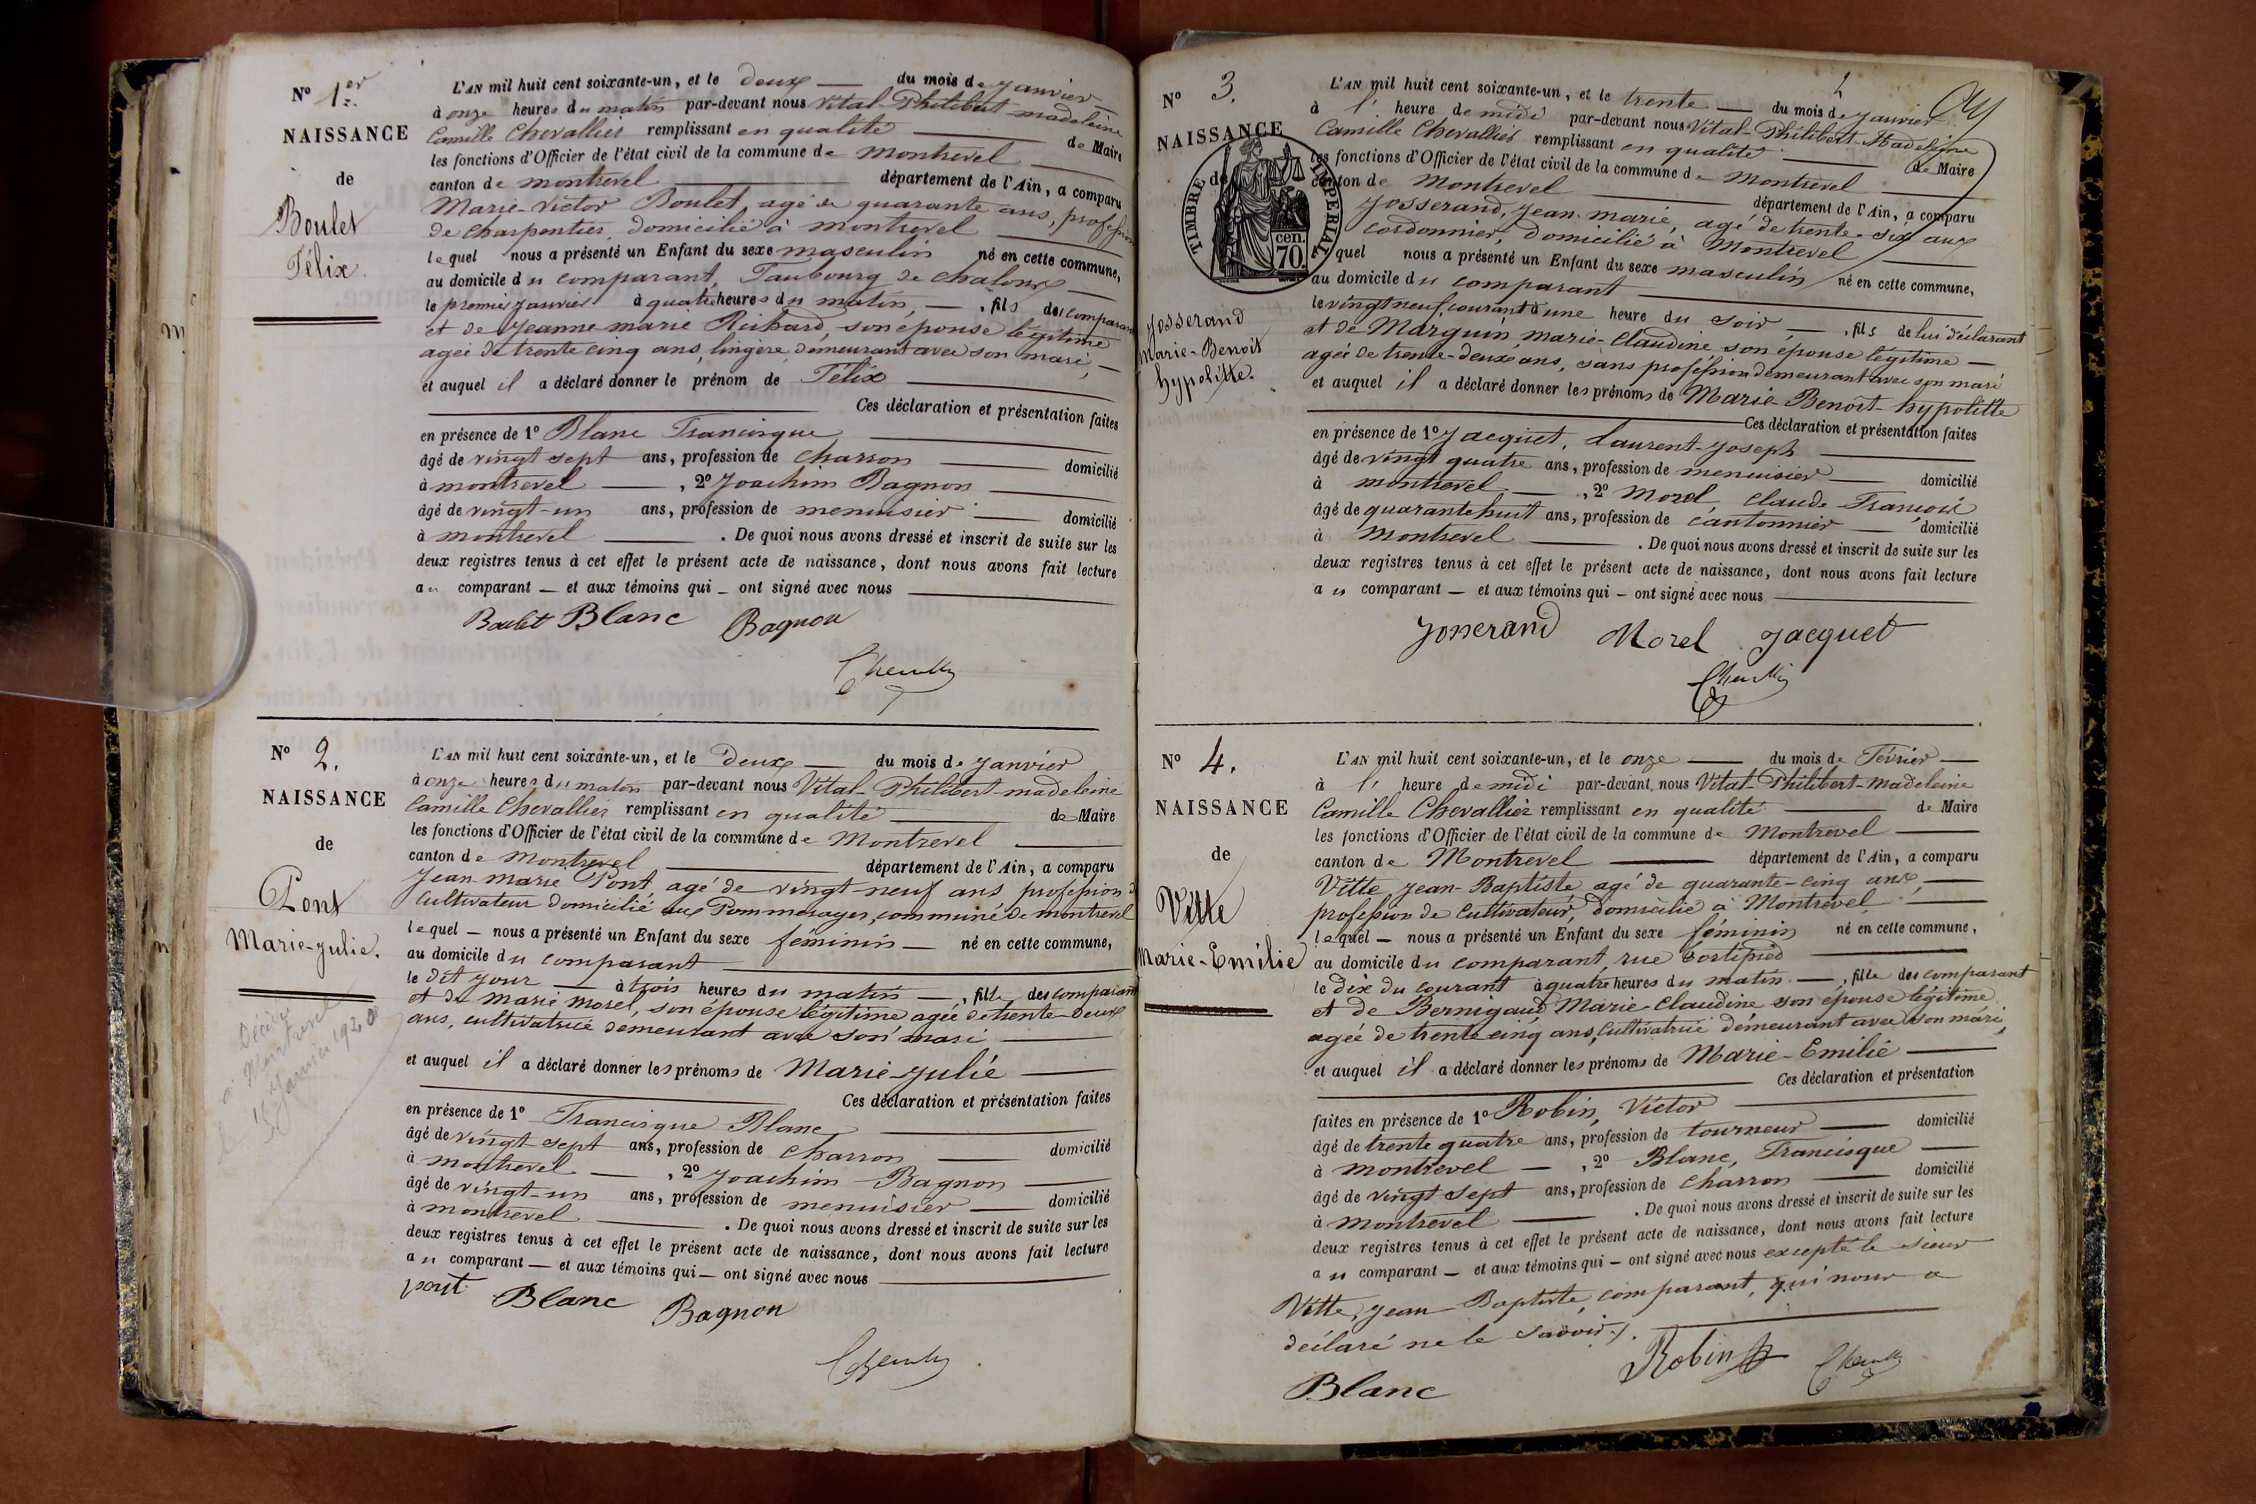 N° 1er
NAISSANCE
de
Boulet
Félix.
L'AN mil huit cent soixante-un, et le deux du mois de janvier
à onze heures du matin par-devant nous Vital-Philibert-madeleine
Camille Chevallier remplissant en qualité de Maire
les fonctions d'Officier de l'état civil de la commune de montrevel
canton de montrevel département de l'Ain, a comparu
Marie-Victor Boulet, agé de quarante ans, profession
de charpentier, domicilié à montrevel
lequel nous a présenté un Enfant du sexe masculin né en cette commune,
au domicile du comparant, Faubourg de chalons
le premier janvier à quatre heures du matin, fils du comparant
et de jeanne marie Richard, son épouse légitime
agée de trente cinq ans, lingère, demeurant avec son mari,
et auquel il a déclaré donner le prénom de Félix
Ces déclaration et présentation faites
en présence de 1° Blanc Francisque
âgé de vingt sept ans, profession de charron domicilié
à montrevel, 2° Joachim Bagnon
âgé de vingt-un ans, profession de menuisier domicilié
à montrevel. De quoi nous avons dressé et inscrit de suite sur les
deux registres tenus à cet effet le présent acte de naissance, dont nous avons fait lecture
au comparant — et aux témoins qui — ont signé avec nous
Boulet Blanc Bagnon
N° 2.
NAISSANCE
de
Pont
Marie-julie.
Décédée
à Montrevel
janvier 1920
L'AN mil huit cent soixante-un, et le Deux du mois de janvier
à onze heures du matin par-devant nous Vital-Philibert-madeleine
Camille Chevallier remplissant en qualité de Maire
les fonctions d'Officier de l'état civil de la commune de Montrevel
canton de montrevel département de l'Ain, a comparu
jean marie Pont agé de vingt-neuf ans profession de
cultivateur domicilié aux Pommerayes, commune de montrevel
lequel — nous a présenté un Enfant du sexe féminin — né en cette commune,
au domicile du comparant
le dit jour à trois heures du matin —, fille du comparant
et de marie morel, son épouse légitime agée de trente-deux
ans, cultivatrice demeurant avec son mari
et auquel il a déclaré donner les prénoms de Marie-julie
Ces déclaration et présentation faites
en présence de 1° Francisque Blanc
âgé de vingt sept ans, profession de charron domicilié
à montrevel, 2° Joachim Bagnon
âgé de vingt-un ans, profession de menuisier domicilié
à montrevel. De quoi nous avons dressé et inscrit de suite sur les
deux registres tenus à cet effet le présent acte de naissance, dont nous avons fait lecture
au comparant — et aux témoins qui — ont signé avec nous
pont Blanc Bagnon
N° 3.
NAISSANCE
de
TIMBRE IMPÉRIAL
70 cen.
Josserand
Marie-Benoit
hypolitte.
L'AN mil huit cent soixante-un, et le trente du mois de janvier
à 1' heure de midi par-devant nous Vital-Philibert-Madeleine
Camille Chevallier remplissant en qualité de Maire
les fonctions d'Officier de l'état civil de la commune de Montrevel
canton de Montrevel département de l'Ain, a comparu
Josserand, jean-marie, agé de trente-six ans
cordonnier, domicilié à Montrevel
lequel nous a présenté un Enfant du sexe masculin né en cette commune,
au domicile du comparant
le vingt neuf courant à une heure du soir, fils de lui déclarant
et de Marguin marie-Claudine son épouse légitime
agée de trente-deux ans, sans profession demeurant avec son mari
et auquel il a déclaré donner les prénoms de Marie-Benoit-hypolitte
Ces déclaration et présentation faites
en présence de 1° Jacquet, Laurent-Joseph
âgé de vingt quatre ans, profession de menuisier domicilié
à montrevel, 2° Morel, Claude François
âgé de quarante huit ans, profession de cantonnier domicilié
à Montrevel. De quoi nous avons dressé et inscrit de suite sur les
deux registres tenus à cet effet le présent acte de naissance, dont nous avons fait lecture
au comparant — et aux témoins qui — ont signé avec nous
Josserand Morel Jacquet
N° 4.
NAISSANCE
de
Vitte
Marie-Emilie
L'AN mil huit cent soixante-un, et le onze du mois de Février
à 1' heure de midi par-devant nous Vital-Philibert-Madeleine
Camille Chevallier remplissant en qualité de Maire
les fonctions d'Officier de l'état civil de la commune de Montrevel
canton de Montrevel département de l'Ain, a comparu
Vitte, jean-Baptiste agé de quarante-cinq ans,
profession de cultivateur, domicilié à Montrevel
lequel — nous a présenté un Enfant du sexe féminin né en cette commune,
au domicile du comparant, rue
le dix du courant à quatre heures du matin —, fille du comparant
et de Bernigaud, Marie-Claudine son épouse légitime
agée de trente cinq ans, cultivatrice demeurant avec son mari,
et auquel il a déclaré donner les prénoms de Marie-Emilie
Ces déclaration et présentation
faites en présence de 1° Robin, Victor
âgé de trente quatre ans, profession de tourneur domicilié
à montrevel —, 2° Blanc, Francisque
âgé de vingt sept ans, profession de charron domicilié
à montrevel. De quoi nous avons dressé et inscrit de suite sur les
deux registres tenus à cet effet le présent acte de naissance, dont nous avons fait lecture
au comparant — et aux témoins qui — ont signé avec nous excepté le sieur
Vitte, jean-Baptiste, comparant, qui nous a
déclaré ne le savoir.
Robin
Blanc